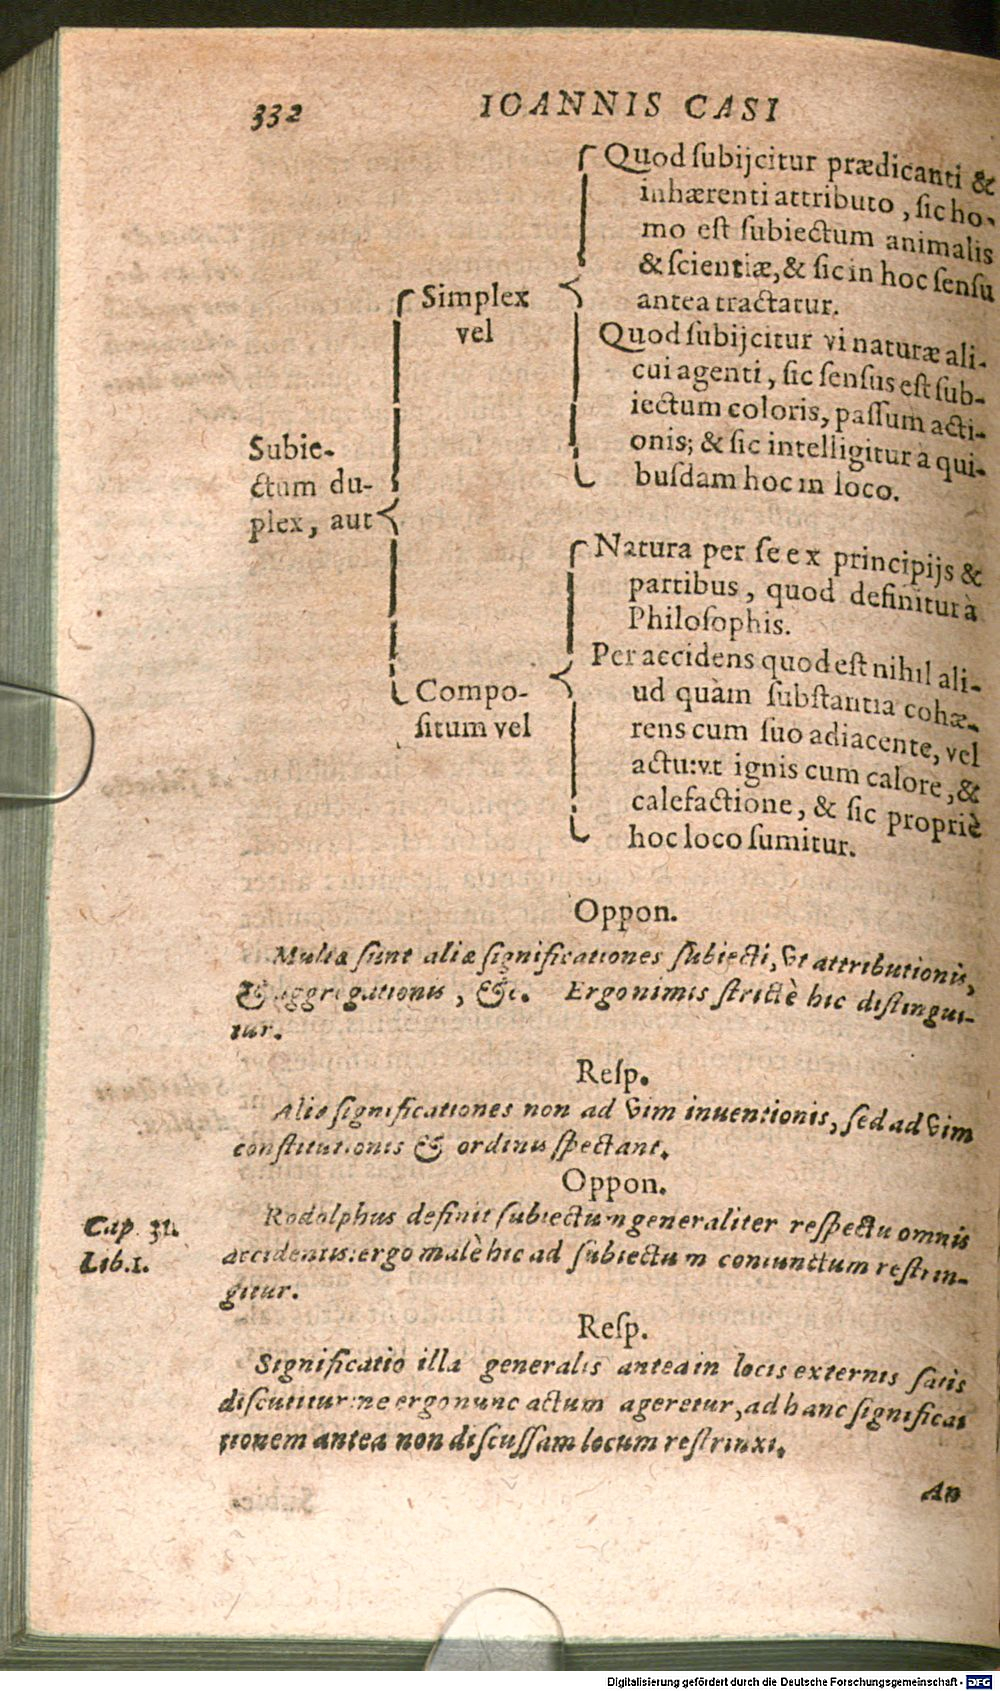 332 IOANNIS CASI
Subie-
ctum du-
plex, aut
Simplex
vel
Quod ſubijcitur prædicanti &
inhærenti attributo, ſic ho-
mo eſt ſubiectum animalis
& ſcientiæ, & ſic in hoc ſenſu
antea tractatur.
Quod ſubijcitur vi naturæ ali-
cui agenti, ſic ſenſus eſt ſub-
iectum coloris, paſſum acti-
onis; & ſic intelligitur à qui-
buſdam hoc in loco.
Compo-
ſitum vel
Natura per ſe ex principijs &
partibus, quod definitur à
Philoſophis.
Per accidens quod eſt nihil ali-
ud quàm ſubſtantia cohæ-
rens cum ſuo adiacente, vel
actu: vt ignis cum calore, &
calefactione, & ſic propriè
hoc loco ſumitur.
Oppon.
Multæ ſunt aliæ ſignificationes ſubiecti, vt attributionis,
& aggregationis, &c. Ergo nimis ſtrictè hic diſtingui-
tur.
Reſp.
Aliæ ſignificationes non ad vim inuentionis, ſed ad vim
conſtitutionis & ordinis ſpectant.
Oppon.
Cap. 31.
Lib. 1.
Rodolphus definit ſubiectum generaliter reſpectu omnis
accidentis: ergo malè hic ad ſubiectum coniunctum reſtrin-
gitur.
Reſp.
Significatio illa generalis antea in locis externis ſatis
diſcutitur: ne ergo nunc actum ageretur, ad hanc ſignificat
tionem antea non diſcuſſam locum reſtrinxi.
An
Digitalisierung gefördert durch die Deutsche Forschungsgemeinschaft - DFG